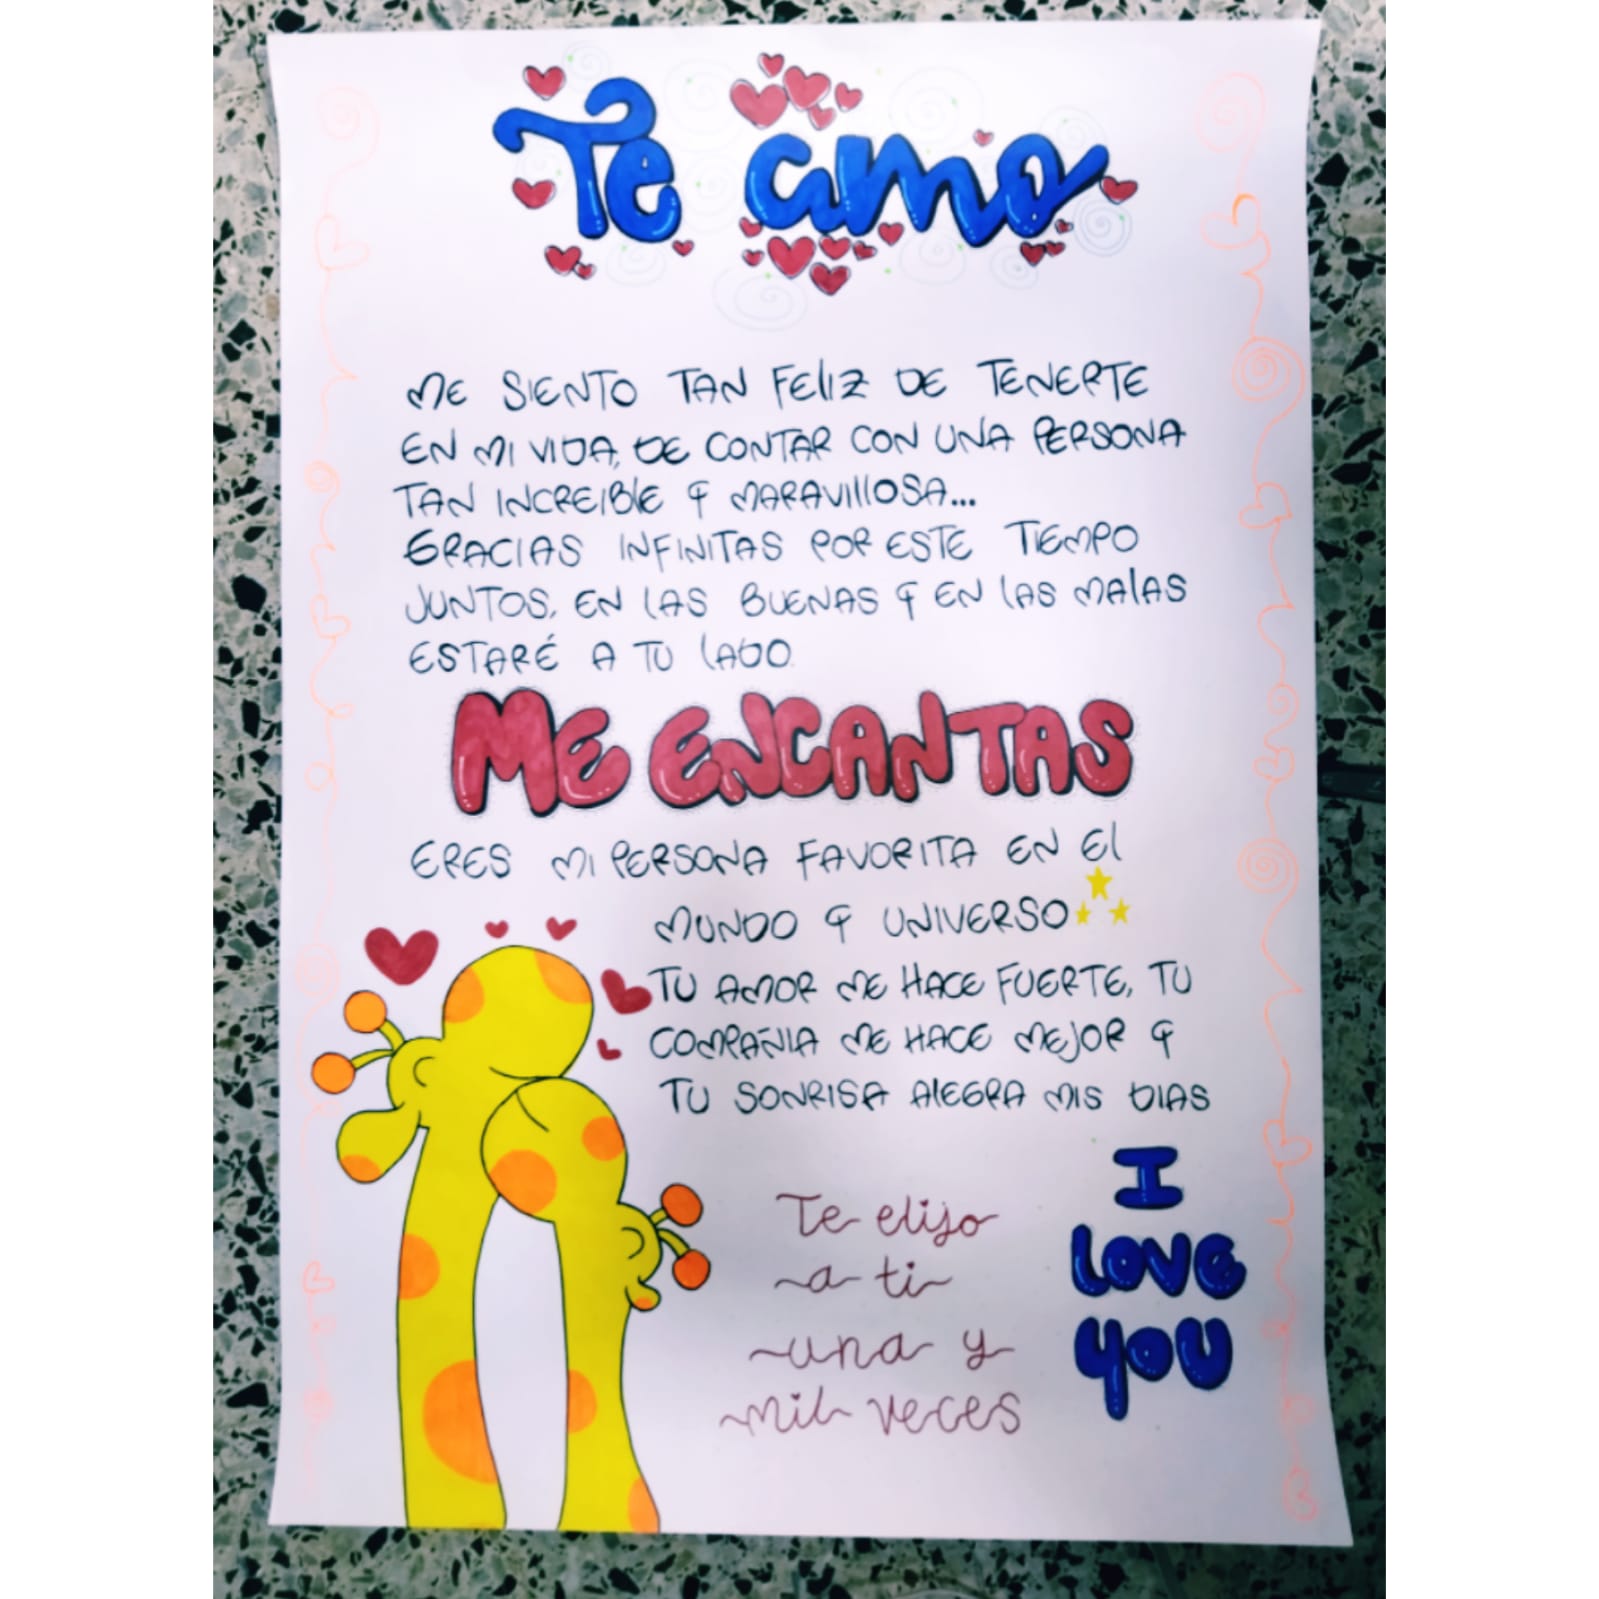 Te amo
ME SIENTO TAN FELIZ DE TENERTE
EN MI VIDA, DE CONTAR CON UNA PERSONA
TAN INCREIBLE Y MARAVILLOSA...
GRACIAS INFINITAS POR ESTE TIEMPO
JUNTOS, EN LAS BUENAS Y EN LAS MALAS
ESTARÉ A TU LADO.
ME ENCANTAS
ERES MI PERSONA FAVORITA EN EL
MUNDO Y UNIVERSO
TU AMOR ME HACE FUERTE, TU
COMPAÑIA ME HACE MEJOR Y
TU SONRISA ALEGRA MIS DIAS
Te elijo
a ti
una y
mil veces
I
LOVE
YOU